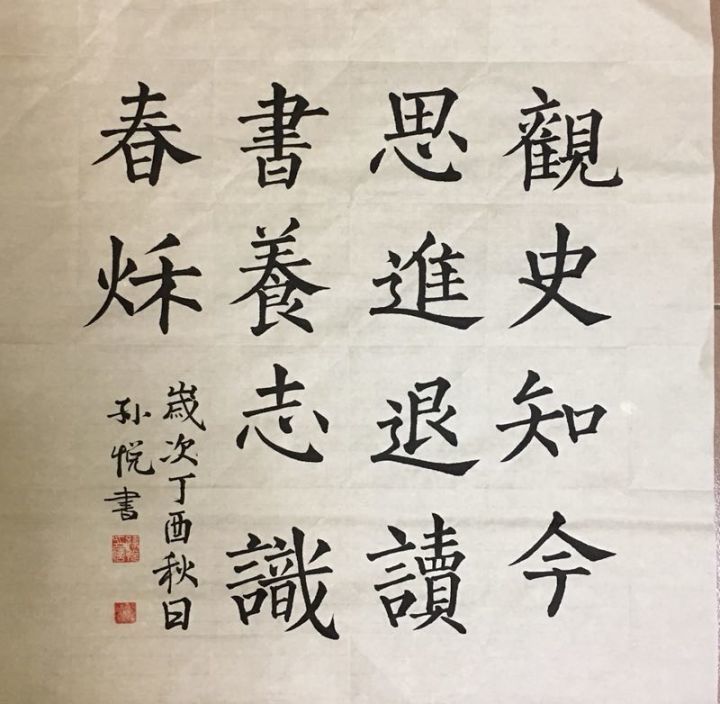 觀史知今
思進退讀
書養志識
春秌
歲次丁酉秋日
孙悦書